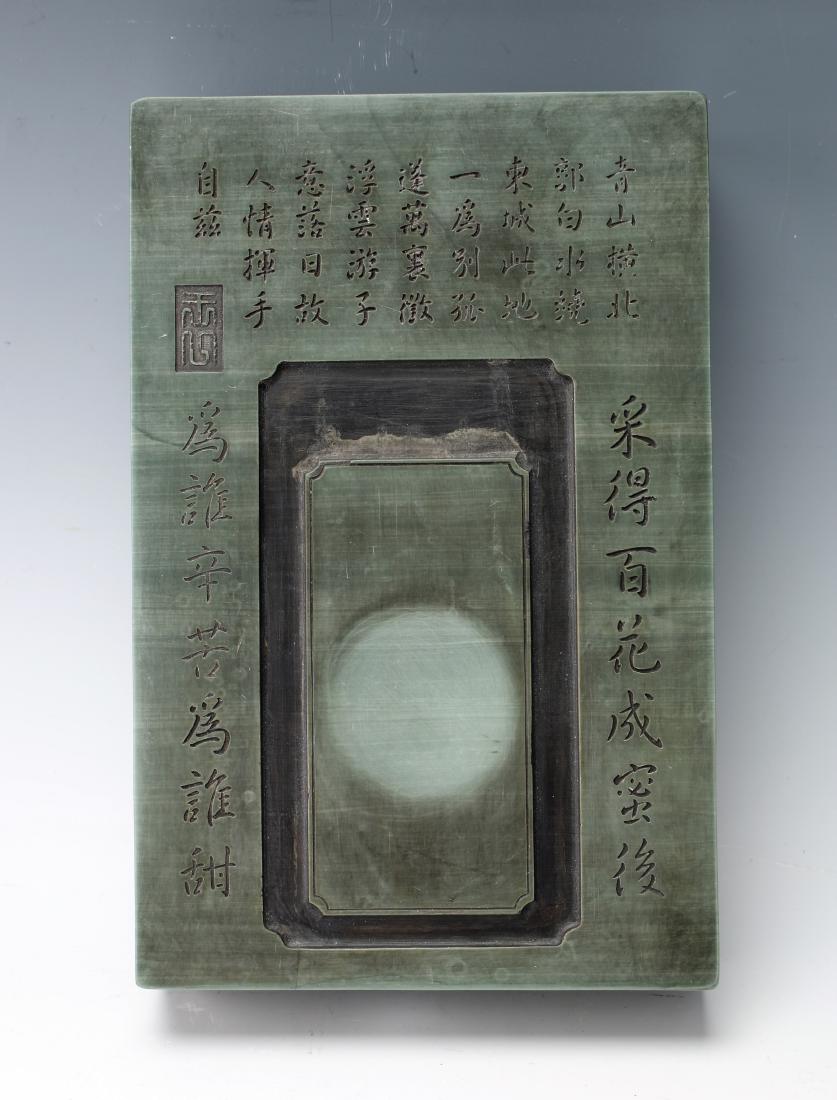 青山橫北
郭白水繞
東城此地
一爲别孤
蓬萬裏徵
浮雲游子
意落日故
人情揮手
自兹
采得百花成蜜後
爲誰辛苦爲誰甜